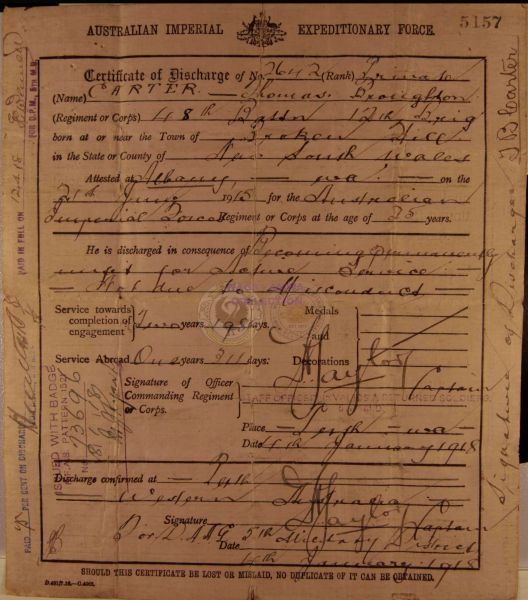 5157
AUSTRALIAN IMPERIAL EXPEDITIONARY FORCE.
Certificate of Discharge of No 2642 (Rank) Private
(Name) CARTER — Thomas Broughton
(Regiment or Corps) 48th Battn 12th Brig
born at or near the Town of Broken Hill
in the State or County of New South Wales
Attested at Albany, — WA — on the
June 1915 for the Australian
Imperial Forces Regiment or Corps at the age of 35 years.
He is discharged in consequence of Becoming Permanently
unfit for Active Service —
— Not due to Misconduct —
Service towards completion of engagement Two years days.
Medals and Decorations
Service Abroad One years 311 days.
Signature of Officer Commanding Regiment or Corps.
Taylor Captain
STAFF OFFICER INVALIDS & RETURNED SOLDIERS,
Place — Perth — WA —
Date 4th January 1918
Discharge confirmed at — Perth
Western Australia
Signature Taylor Captain
For D.A.A.G. 5th Military District
Date 4th January 1918
SHOULD THIS CERTIFICATE BE LOST OR MISLAID, NO DUPLICATE OF IT CAN BE OBTAINED.
PAID IN FULL ON 12.4.18
FOR D.P.M., 5TH M.D.
PAID PER CENT ON DISCHARGE
ISSUED WITH BADGE
73696
Signature of Discharger T B Carter